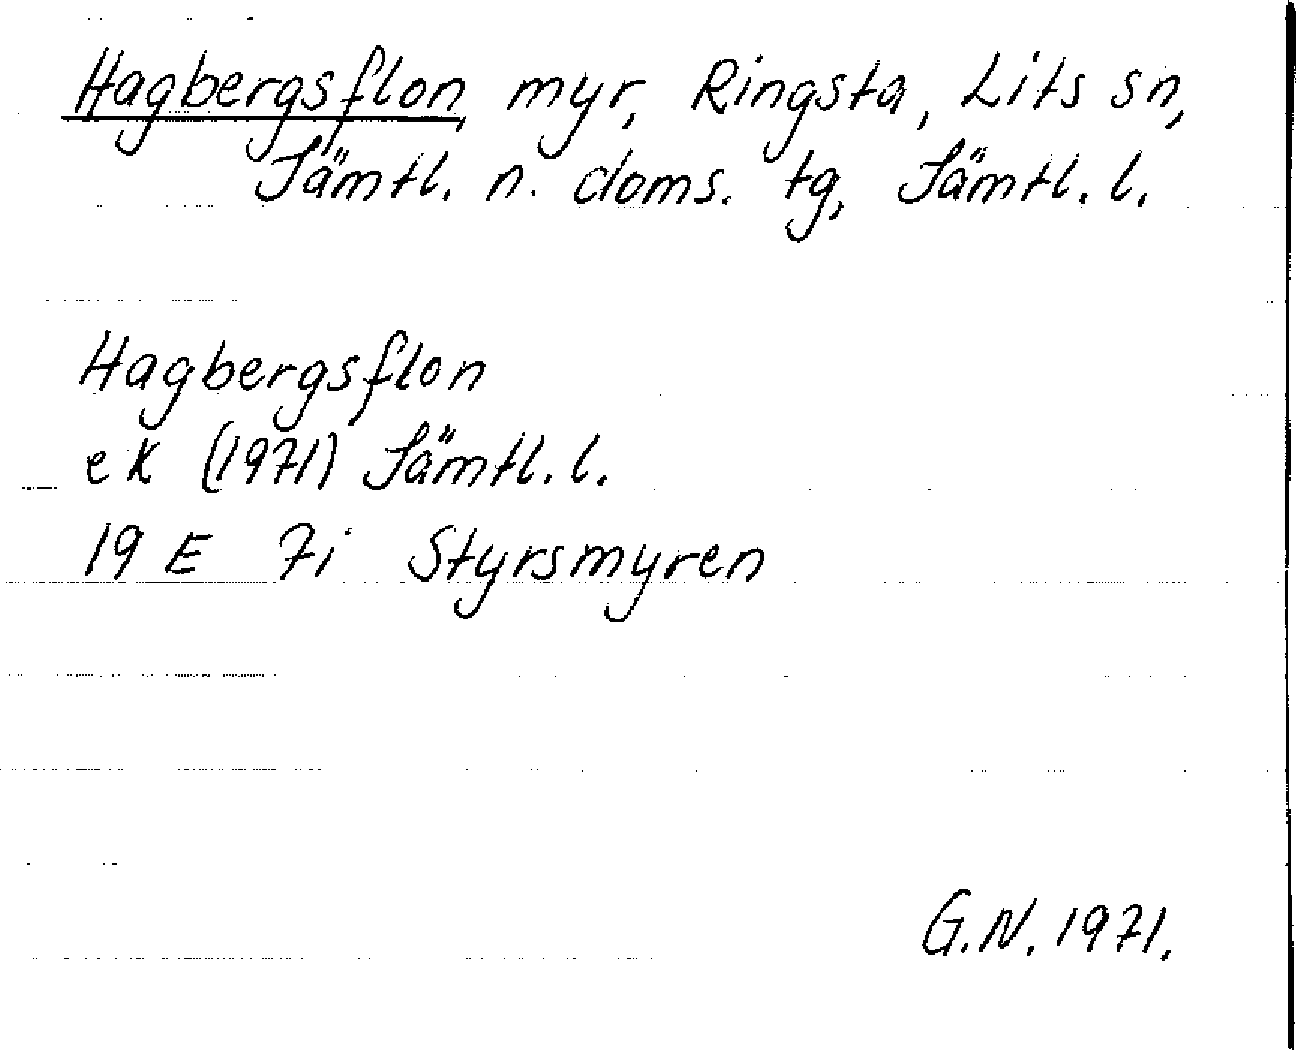 Hagbergsflon, myr, Ringsta, Lits sn,
Jämtl. n. doms. tg, Jämtl. l.
Hagbergsflon
ek (1971) Jämtl. l.
19 E 7i Styrsmyren
G.N. 1971.